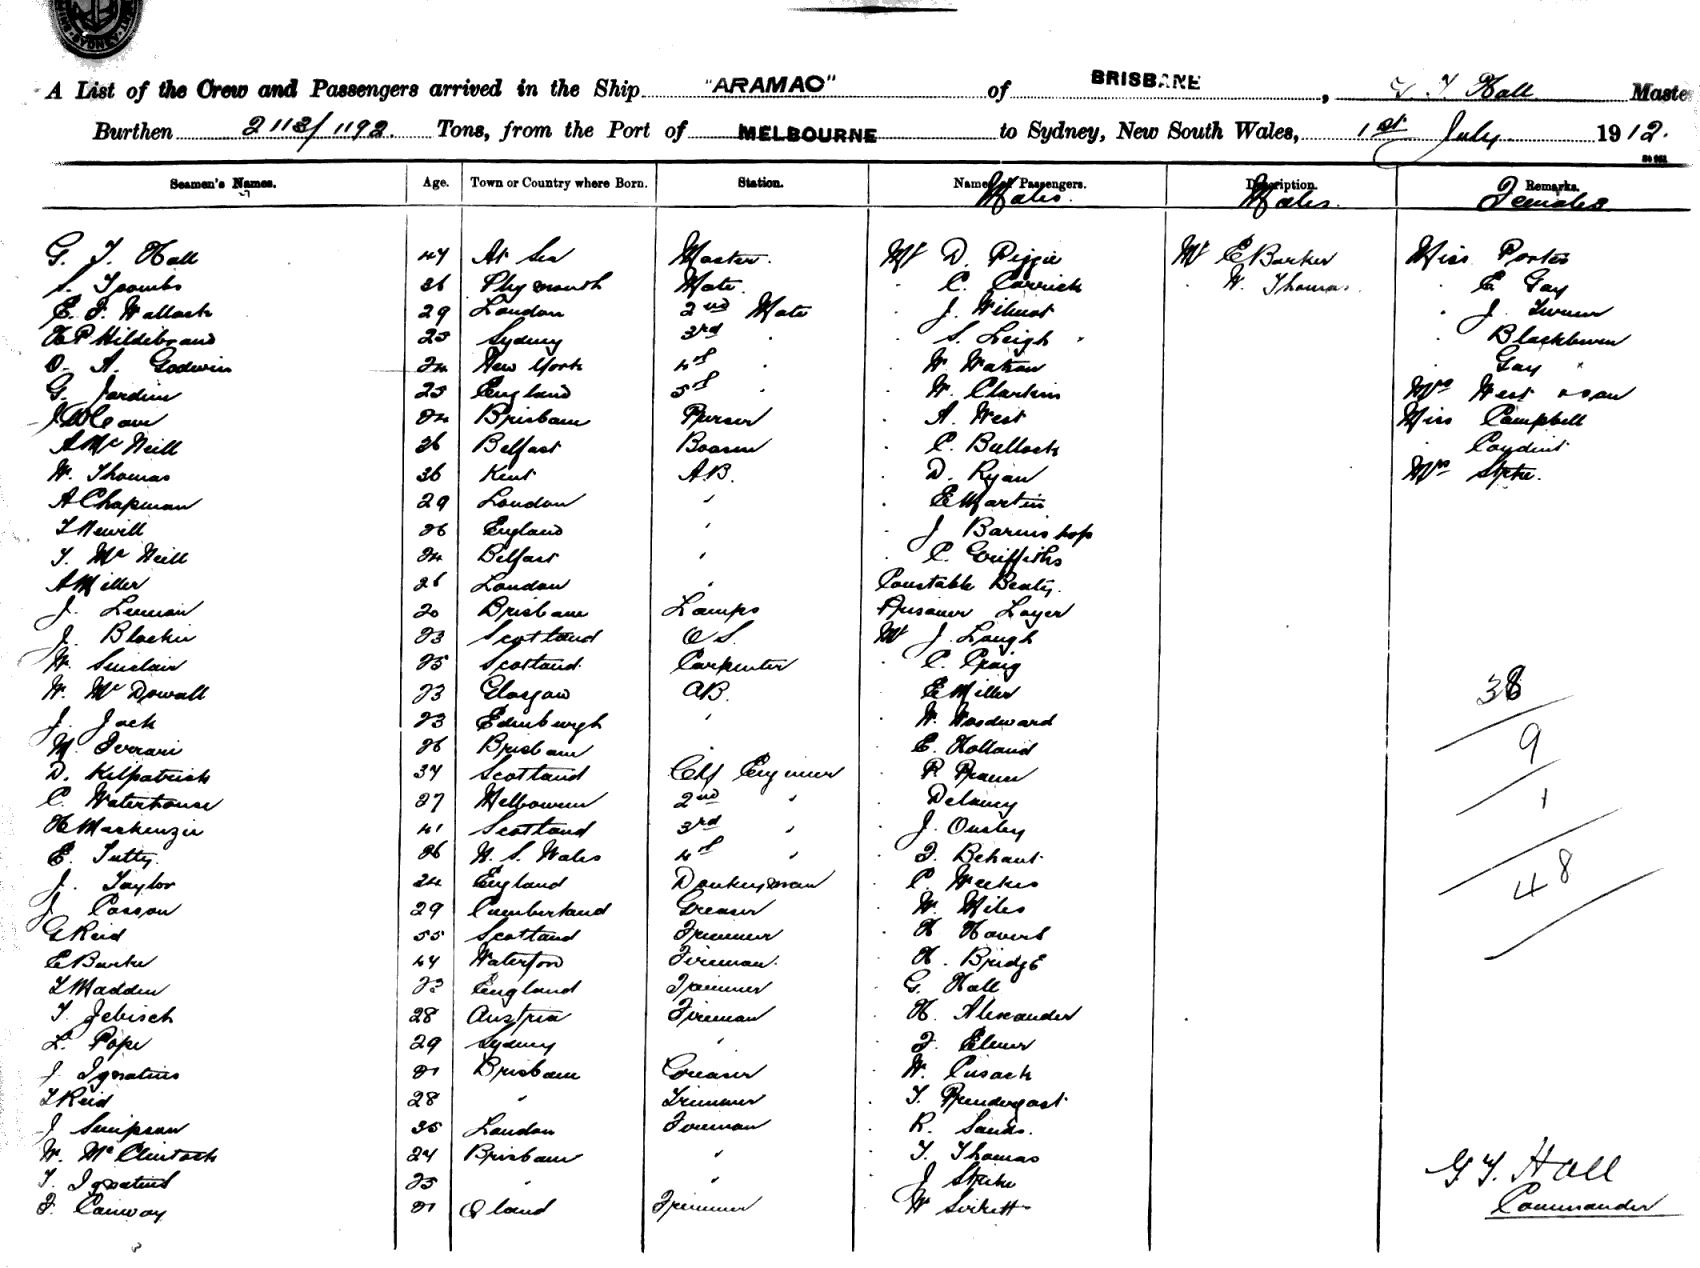 SYDNEY
A List of the Crew and Passengers arrived in the Ship "ARAMAC" of BRISBANE, G T Hall Maste
Burthen 2113/1192 Tons, from the Port of MELBOURNE to Sydney, New South Wales, 1st July 1912.
Seamen's Names. Age. Town or Country where Born. Station. Names of Passengers. Description. Remarks.
Males. Males. Females
G. T. Hall 47 At Sea Master. Mr D. Piggie Mr E Barker Miss Porter
S. Toombs 36 Plymouth Mate. " C. Carrick " W. Thomas " E Gay
E. F. Wallack 29 London 2nd Mate " J. Wilmot " J.
H P Hildebrand 25 Sydney 3rd " " S. Leigh " Blackburn
O. A. Godwin 24 New York 4th " " W. Watson " Gay
G. Jardine 25 England 5th " " W. Mrs West & son
24 Brisbane Purser " A. West Miss Campbell
A McNeill 36 Belfast Boasen " C. Bullock "
W. Thomas 36 Kent A.B. " D. Ryan Mrs
A Chapman 29 London " " E Martin
T Newill 26 England " " J
T. McNeill 24 Belfast " " C. Griffiths
A Miller 26 London " Constable Beaty.
J. 20 Brisbane Lamps Prisoner Layer
J. Blackie 23 Scotland O S. Mr J. Laugh
W. Sinclair 25 Scotland. Carpenter " C. Craig
W. McDowall 23 Glasgow AB. " E Miller
J. Jack 23 Edinburgh " " W. Woodward
M. Ferrari 26 Brisbane " " E. Holland
D. Kilpatrick 34 Scotland Chf Engineer " P.
C. Waterhouse 27 Melbourne 2nd " " Delaney
H Mackenzie 41 Scotland 3rd " " J. Ousley
E. Tutty. 26 N. S. Wales 4th " " F.
J. Taylor 24 England Donkeyman " C. Weekes
J. Casson 29 Cumberland Greaser " W. Miles
G Reid 55 Scotland Trimmer " H
E Barker 44 Waterford Fireman. " H. Bridge
T Madden 23 England Trimmer " G. Hall
T. Jebisch 28 Austria Fireman " H. Alexander
L. Pope 29 Sydney " " F. Elmer
J. Ignatius 21 Brisbane Greaser " W. Cusack
T Reid 28 " Trimmer " T. Prendergast
J Simpson 35 London Foreman " R. Sands.
W. McClintock 24 Brisbane " " T. Thomas
T. Ignatius 25 " " " J
F. Conway 21 Qland Trimmer " W
38
9
1
48
G T. Hall
Commander